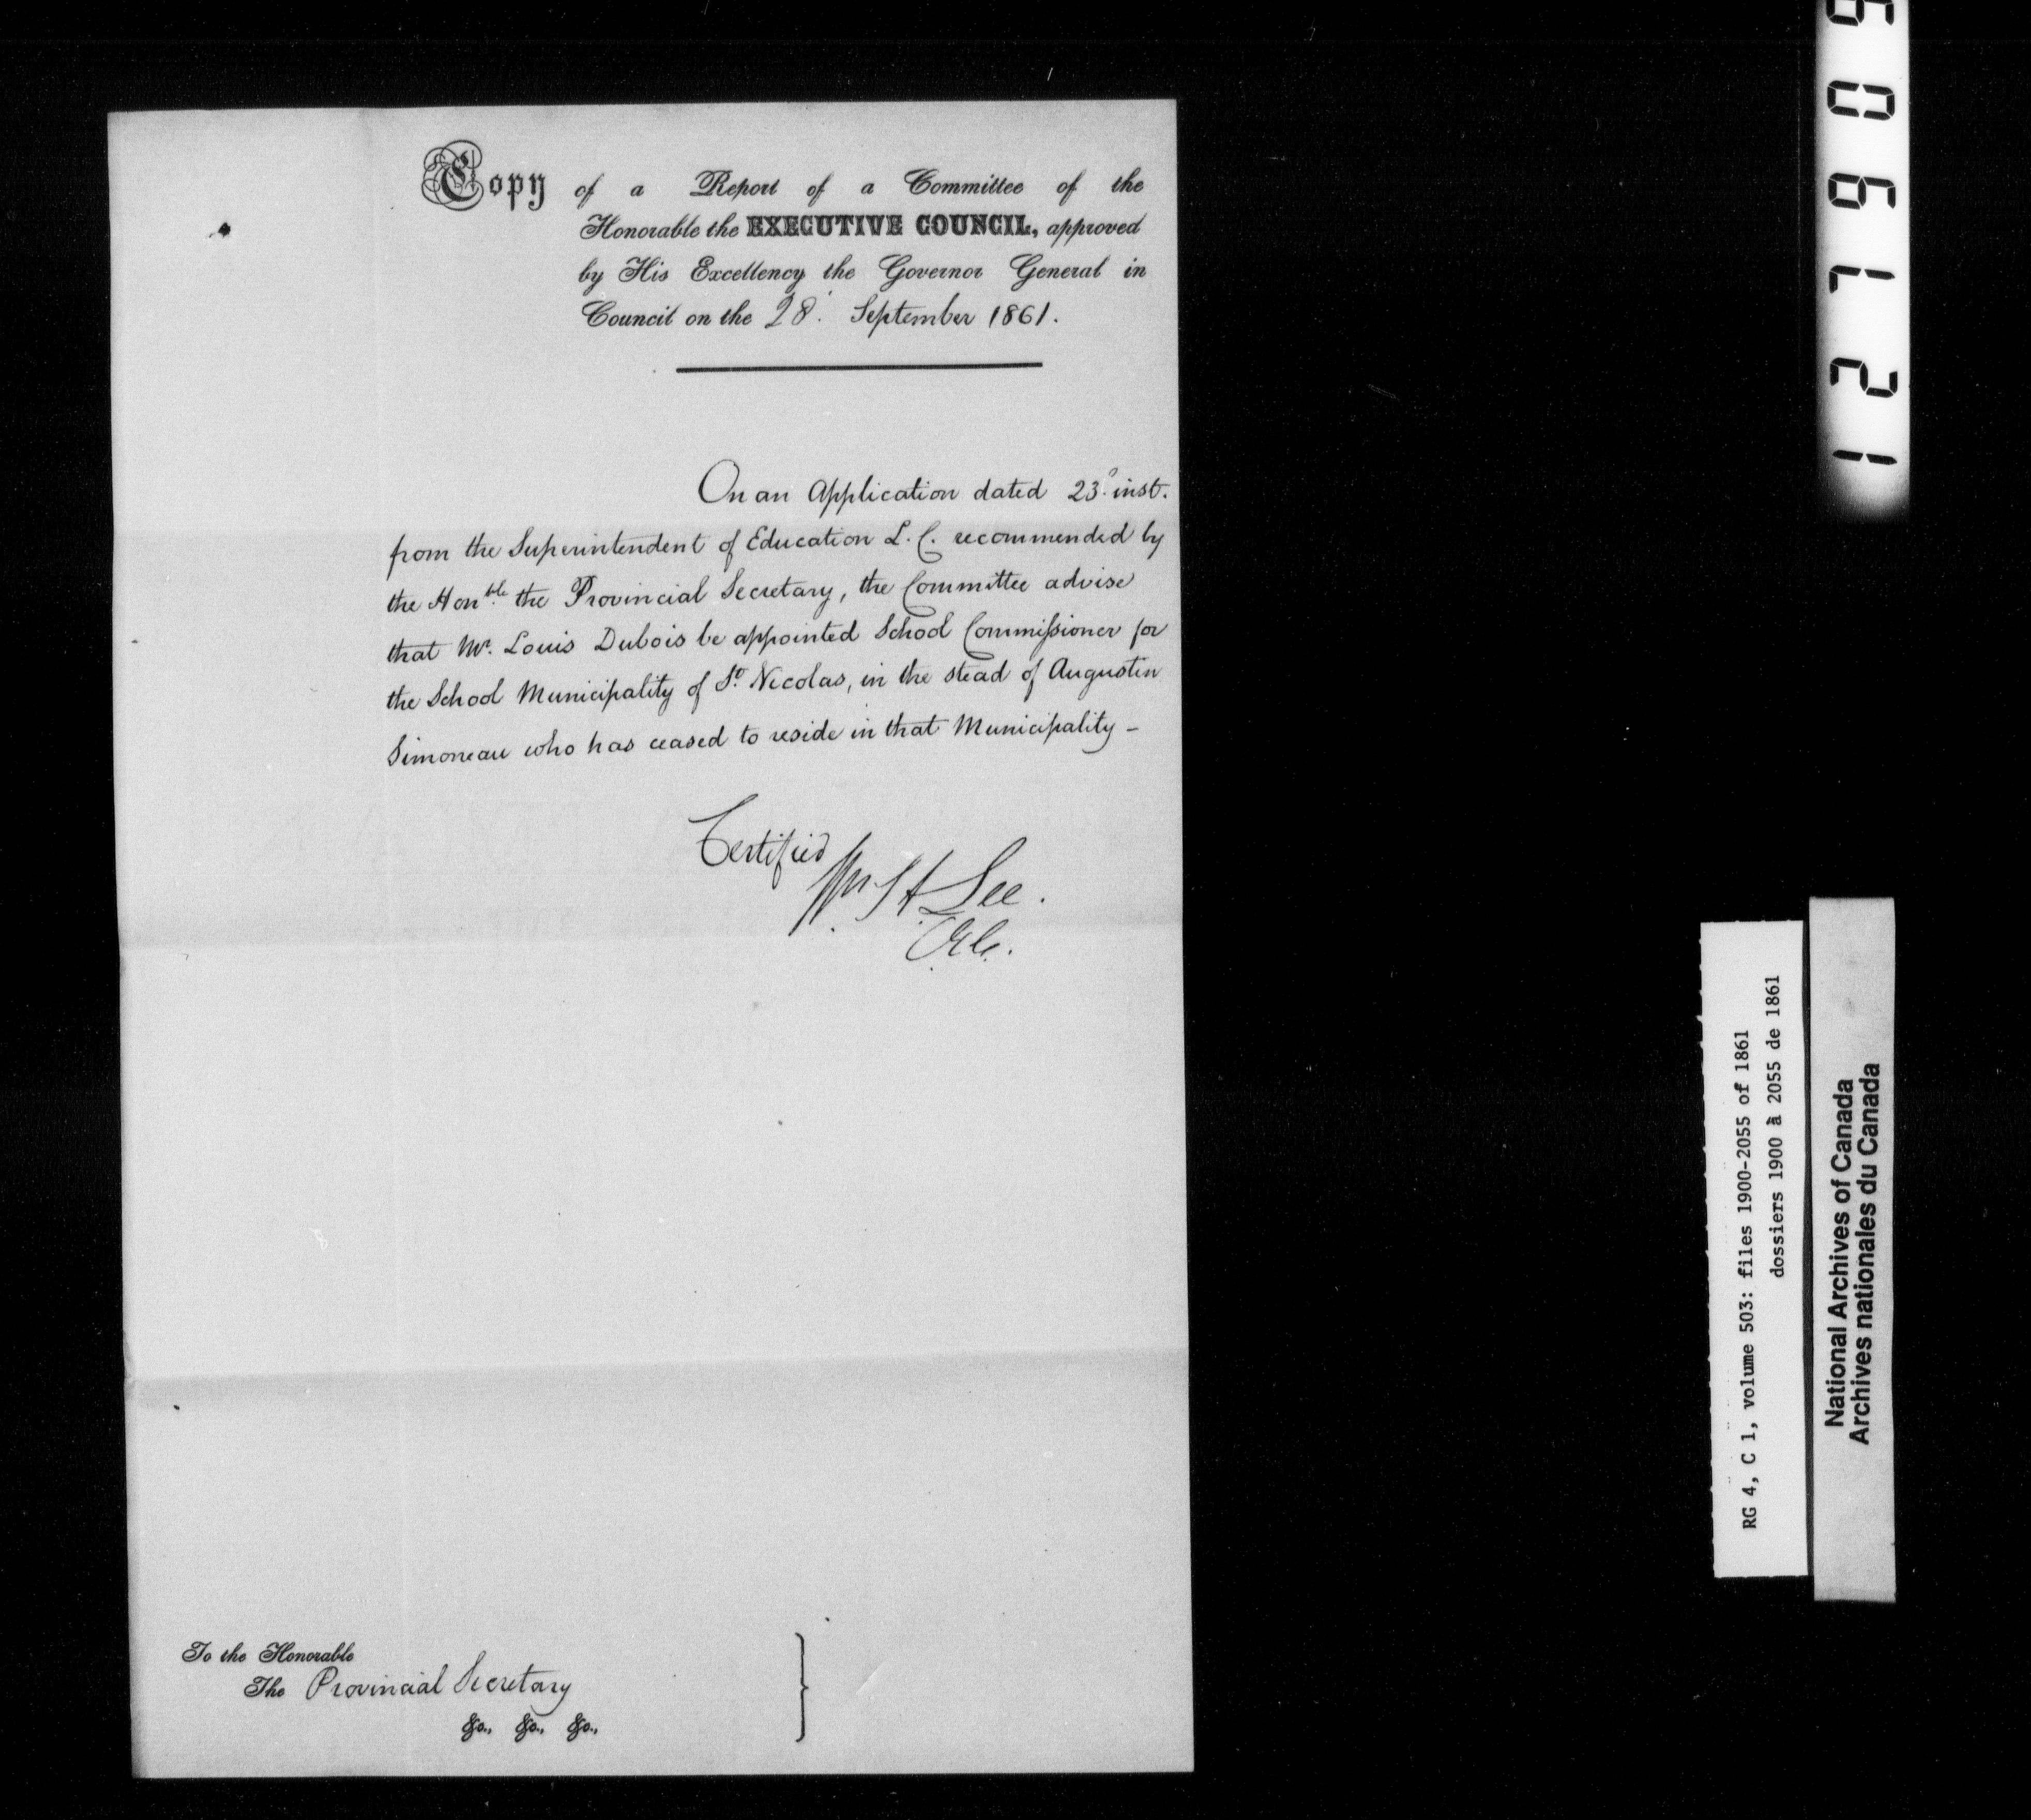 Copy of a Report of a Committee of the
Honorable the EXECUTIVE COUNCIL, approved
by His Excellency the Governor General in
Council on the 28. September 1861.
On an Application dated 23d. inst.
from the Superintendent of Education L. C. recommended by
the Honble. the Provincial Secretary, the Committee advise
that Mr. Louis Dubois be appointed School Commissioner for
the School Municipality of St. Nicolas, in the stead of Augustin
Simoneau who has ceased to reside in that Municipality –
Certified
Wm H Lee.
C.E.C.
To the Honorable
The Provincial Secretary
&c., &c., &c.,
RG 4, C 1, volume 503: files 1900-2055 of 1861
dossiers 1900 à 2055 de 1861
National Archives of Canada
Archives nationales du Canada